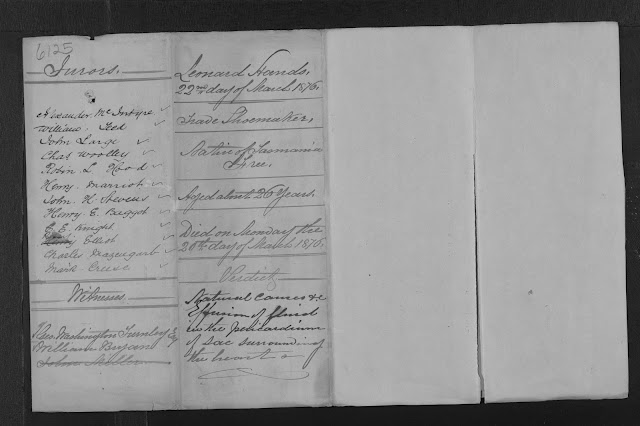 6125
Jurors.
Alexander McIntyre
William Reed
John Large
Chas Woolley
Robin L Hood
Henry Marriott
John H. Stevens
Henry E. Baggot
E. E. Knight
Elliot
Charles
Mark Cruse
Witnesses
Washington Turnley Esq
William Bryan
John Miller
Leonard Hands.
22nd day of March 1876.
Trade Shoemaker.
Native of Tasmania
Free.
Aged about 26 years.
Died on Monday the
20th day of March 1876.
Verdict
Natural causes &c
Effusion of fluid
in the pericardium
of sac surrounding
the heart